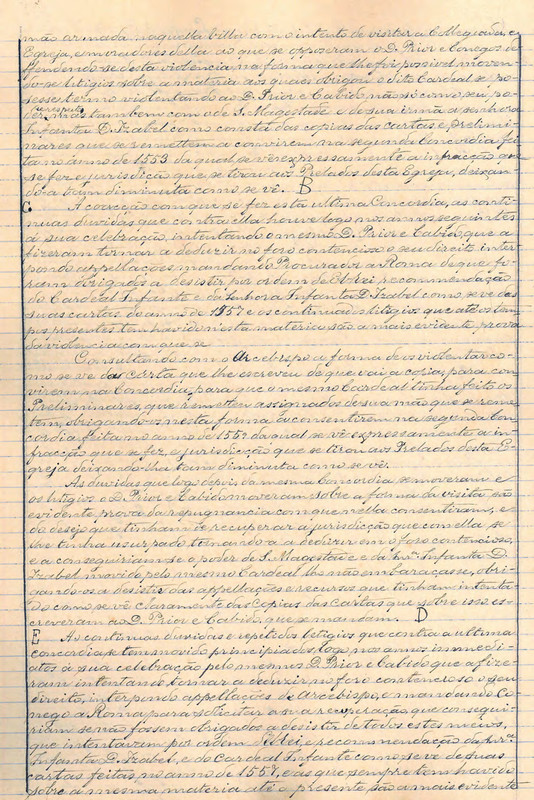 mão armada naquella Villa com o intento de visitar a Collegiada, e
Egreja, e moradores della ao que se opposeram o D. Prior e Conegos de
fendendo-se desta violencia na forma que lhe foi possivel moven-
do-se litigios sobre a materia aos quaes obrigou o dito Cardeal se po-
sesse termo violentando ao D. Prior e Cabido, não só com o seu po-
der, respeito mas tambem com o de S. Magestade e o de sua irmã a senhora
Infanta D. Izabel como consta das copias das cartas, e prelimi-
nares que se remettem a convirem na segunda concordia fei
ta no anno de 1553 da qual se vê expressamente a infracção que
se fez e jurisdicção que se tirou aos Prelados desta Egreja, deixan-
do-a tam diminuta como se vê. D
C A coacção com que se fez esta ultima Concordia, as conti-
nuas duvidas que contra ella houve logo nos annos seguintes
á sua celebração, intentando o mesmo D. Prior e Cabido, que a
fizeram tornar a deduzir no foro contencioso o seu direito inter-
pondo appellações mandando Procurador a Roma de que fo-
ram obrigados a desistir por ordem de ElRei recommendação
do Cardeal Infante e da Senhora Infanta D. Izabel como se ve das
suas cartas do anno de 1557 e os continuados litigios que até os tem-
pos presentes tem havido nesta materia são a mais evidente prova
da violencia com que se
Consultando com o Arcebispo a forma de os violentar co-
mo se ve da carta que lhe escreveu de que vai a copia, para con-
virem na Concordia, para que o mesmo Cardeal tinha feito os
Preliminares, que remetteu assignados de sua mão que se reme-
tem, obrigando-os nesta forma a consentirem na segunda con-
cordia feita no anno de 1553 da qual se vê expressamente a in-
fracção que se fez, e jurisdicção que se tirou aos Prelados desta E-
greja deixando-lha tam diminuta como se vê.
As duvidas que logo depois da mesma Concordia se moveram e
os litigios o D. Prior e Cabido moveram sobre a forma da visita são
evidente prova da repugnancia com que nella consentiram, e
do desejo que tinham de recuperar a jurisdicção que com ella se
lhe tinha usurpado tornando-a a deduzir em o foro contencioso,
e a conseguiriam se o poder de S. Magestade e da Snrª Infanta D.
Izabel movido pelo mesmo Cardeal lho não embaraçasse, obri-
gando-os a desistir das appellações e recursos que tinham intenta-
do como se vê claramente das copias das cartas que sobre isso es-
creveram ao D. Prior e Cabido, que se mandam. D
E As continuas duvidas e repetidos letigios que contra a ultima
concordia, se tem movido principiados logo nos annos immedi-
atos á sua celebração pelo mesmo D. Prior e Cabido que a fize-
ram intentando tornar a deduzir no foro contencioso o seu
direito, interpondo appellações do Arcebispo, e mandando Co-
nego a Roma para solicitar a sua recuperação que consegui-
riam se não fossem obrigados a desistir de todos estes meios,
que intentavam por ordem ElRei, e recommendação da Snrª
Infanta D. Izabel, e do Cardeal Infante como se ve de suas
cartas feitas, no anno de 1557, e as que sempre tem havido
sobre a mesma materia até o presente são a mais evidente